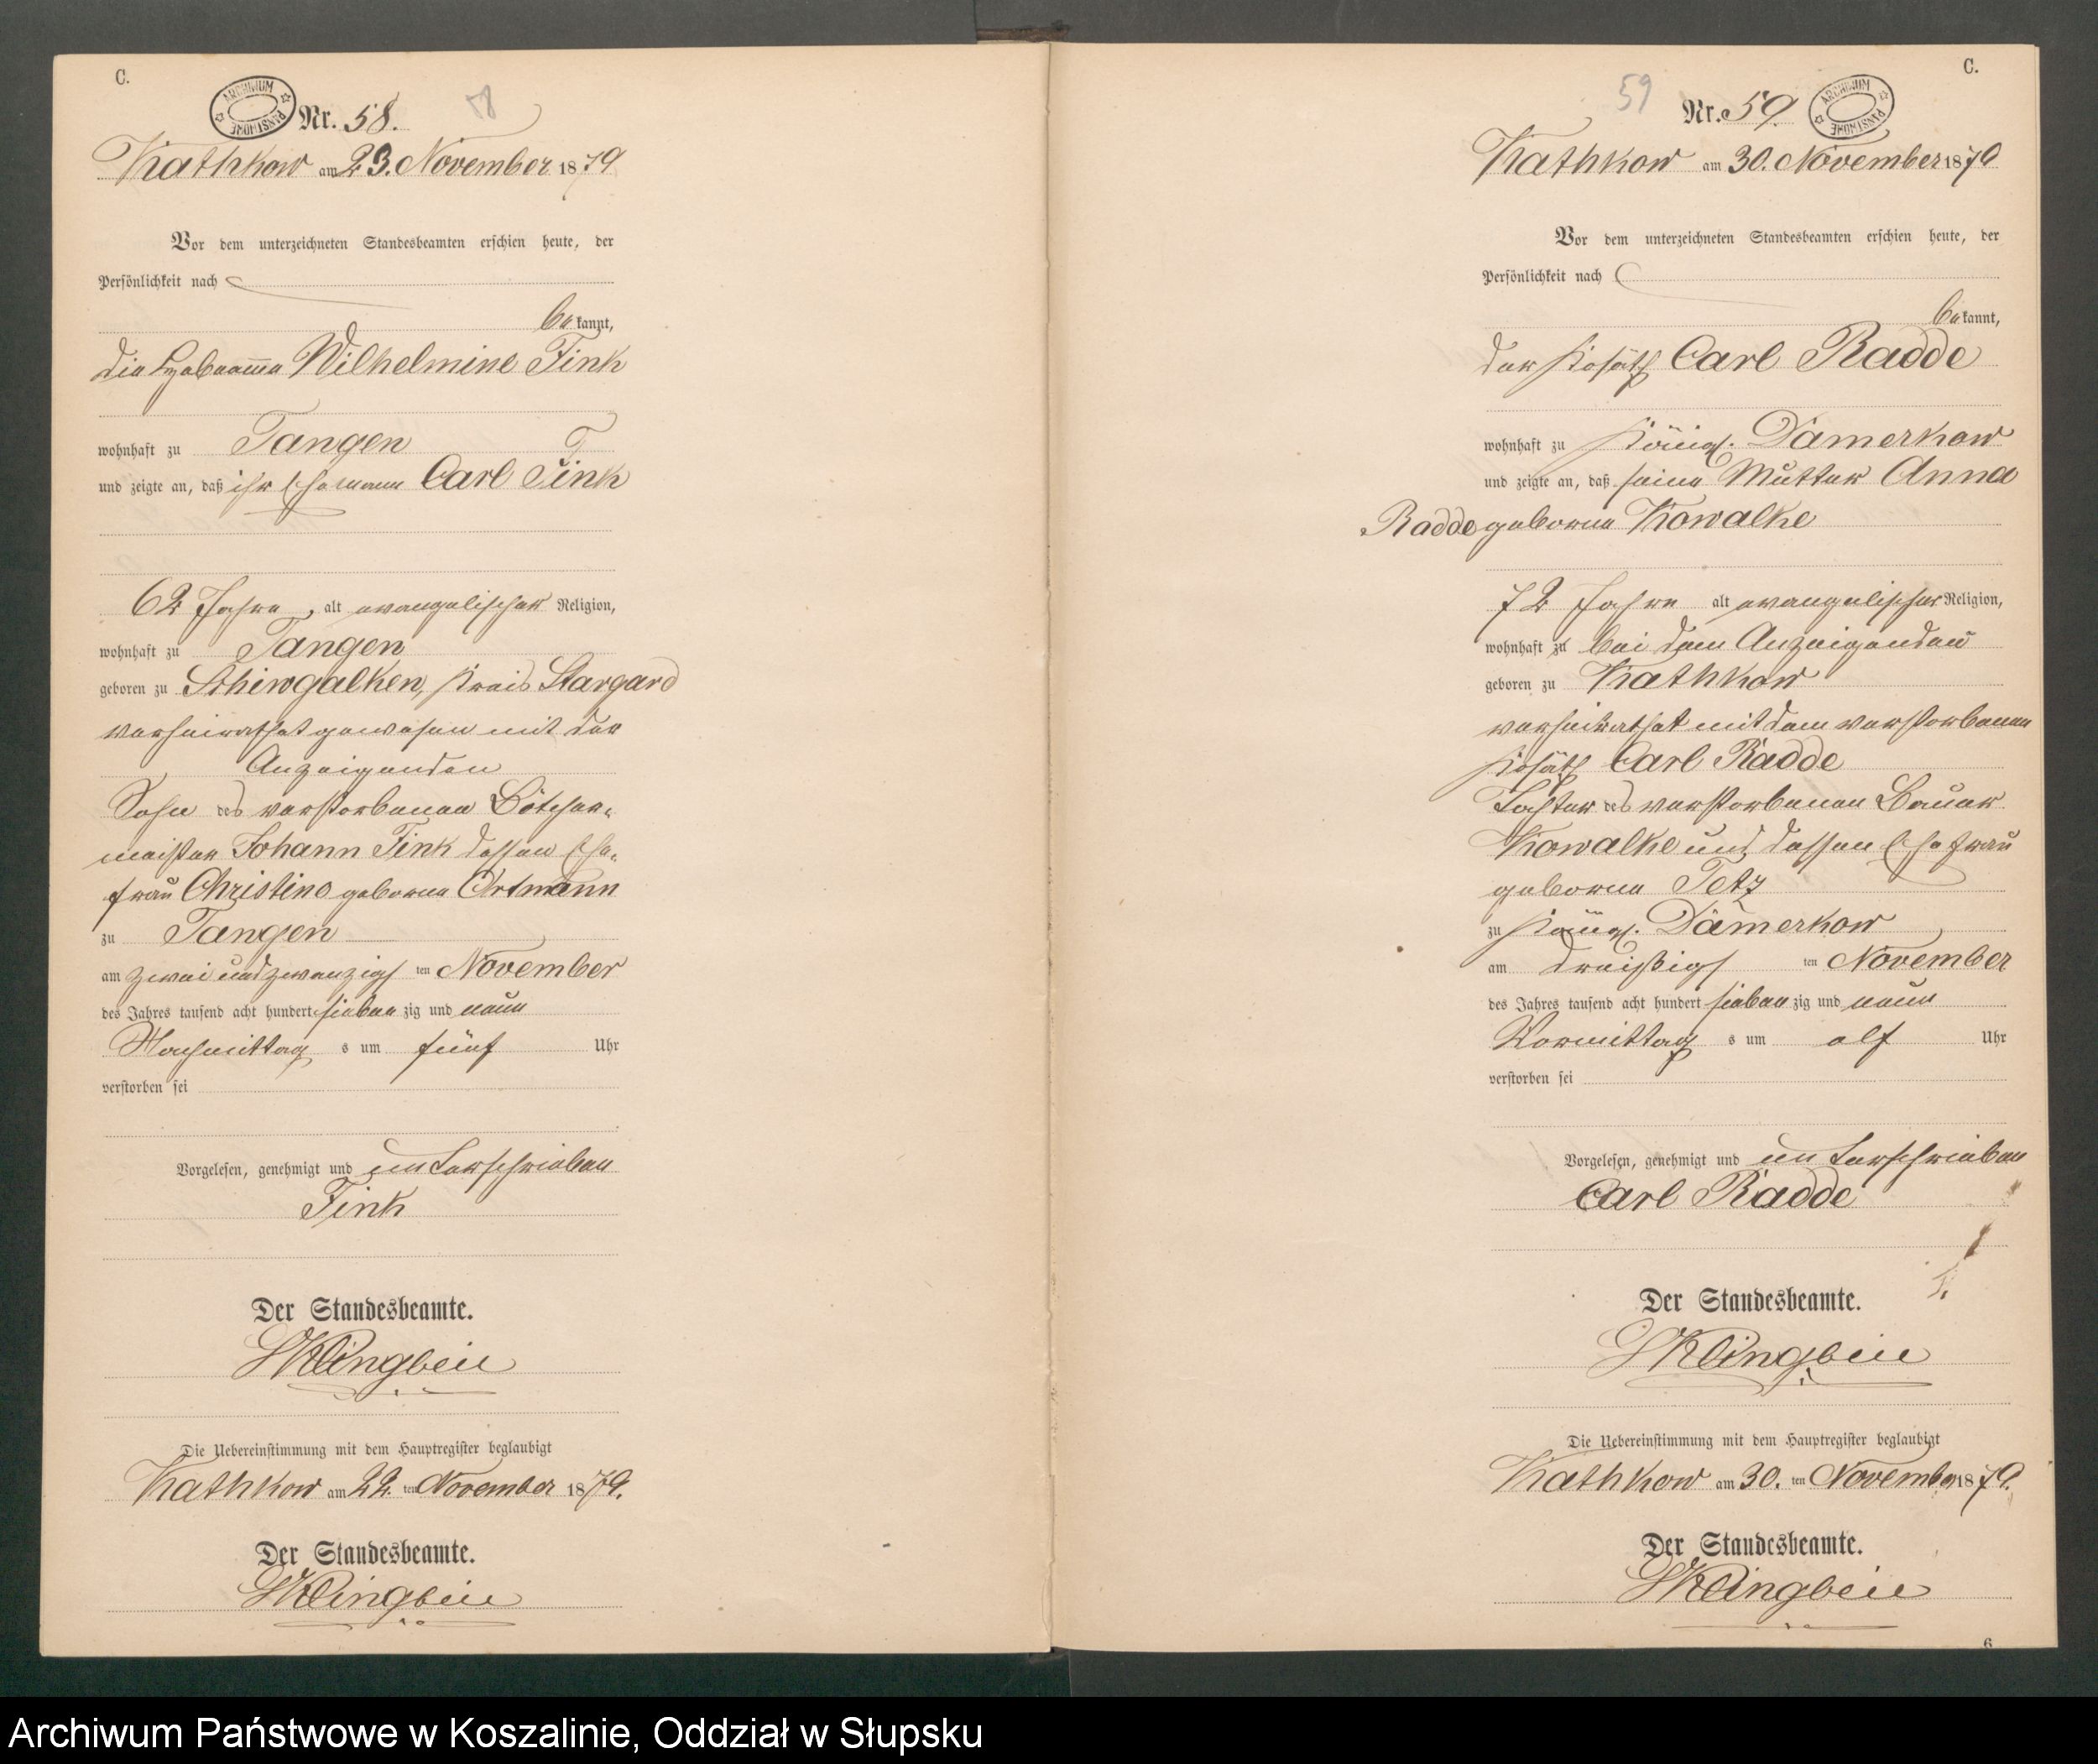 C.
ARCHIWUM PAŃSTWOWE
Nr. 58.
58
Kathkow am 23. November 1879
Vor dem unterzeichneten Standesbeamten erschien heute, der
Persönlichkeit nach
be kannt,
die Hebeamme Wilhelmine Fink
wohnhaft zu Tangen
und zeigte an, daß ihr Ehemann Carl Fink
62 Jahre, alt evangelischer Religion,
wohnhaft zu Tangen
geboren zu Schiwgalken, Kreis Stargard
verheirathet gewesen mit der
Anzeigenden
Sohn des verstorbenen Bötcher-
meister Johann Fink dessen Ehe-
frau Christine geborne Ortmann
zu Tangen
am zwei und zwanzigs ten November
des Jahres tausend acht hundert sieben zig und neun
Nachmittag s um fünf Uhr
verstorben sei
Vorgelesen, genehmigt und unterschrieben
Fink
Der Standesbeamte.
Klingbeil
Die Uebereinstimmung mit dem Hauptregister beglaubigt
Kathkow am 22. ten November 1879.
Der Standesbeamte.
Klingbeil
C.
59
Nr. 59.
ARCHIWUM PAŃSTWOWE
Kathkow am 30. November 1879
Vor dem unterzeichneten Standesbeamten erschien heute, der
Persönlichkeit nach
be kannt,
der Kosäth Carl Radde
wohnhaft zu Königl. Damerkow
und zeigte an, daß seine Mutter Anna
Radde geborne Kowalke
72 Jahre alt evangelischer Religion,
wohnhaft zu bei dem Anzeigenden
geboren zu Kathkow
verheirathet mit dem verstorbenen
Kosäth Carl Radde
Tochter des verstorbenen Bauer
Kowalke und dessen Ehefrau
geborne Tetz
zu Königl. Damerkow
am dreißigs ten November
des Jahres tausend acht hundert sieben zig und neun
Vormittag s um elf Uhr
verstorben sei
Vorgelesen, genehmigt und unterschrieben
Carl Radde
Der Standesbeamte.
Klingbeil
Die Uebereinstimmung mit dem Hauptregister beglaubigt
Kathkow am 30. ten November 1879.
Der Standesbeamte.
Klingbeil
6
Archiwum Państwowe w Koszalinie, Oddział w Słupsku